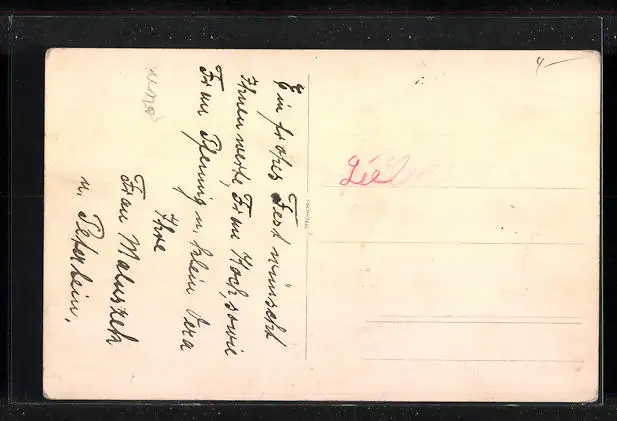 Ein frohes Fest wünscht
Ihnen werte Frau Koch, sowie
Frau Pfennig u. klein Vera
Ihre
Frau Maluszek
u. Peterlein.
4-